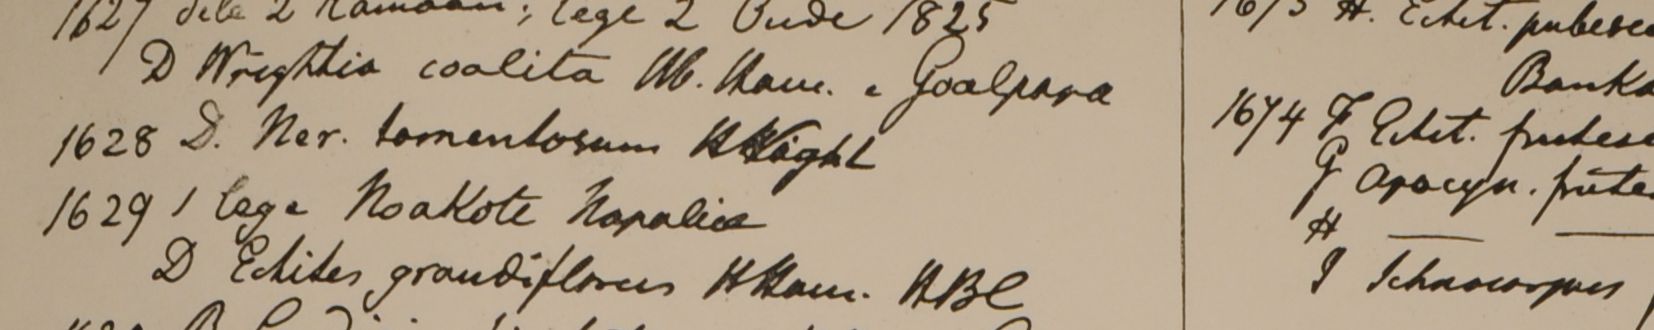 1627 dele 2 Kamaon; lege 2 Oude 1825
D Wrightia coalita Hb. Ham. e Goalpara
1628 D. Ner. tomentosum HWight
1629 1 lege Noakote Napalia
D Echites grandiflorus HHam. HBC
H. Echit. pubesc
Banka
1674 F Echit. frutesc
G Apocyn. frute
H — —
I Ichnocarpus